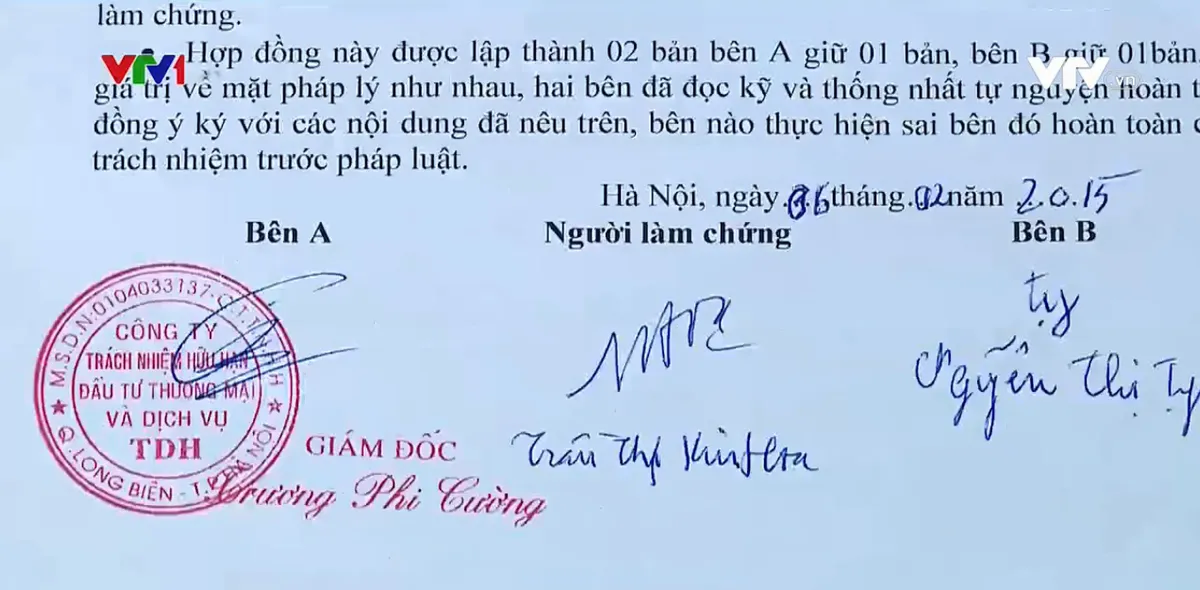 làm chứng.
Hợp đồng này được lập thành 02 bản bên A giữ 01 bản, bên B giữ 01bản
giá trị về mặt pháp lý như nhau, hai bên đã đọc kỹ và thống nhất tự nguyện hoàn t
đồng ý ký với các nội dung đã nêu trên, bên nào thực hiện sai bên đó hoàn toàn c
trách nhiệm trước pháp luật.
VTV1
VTV.vn
Hà Nội, ngày 06 tháng 02 năm 2015
Bên A
Người làm chứng
Bên B
M.S.D.N:0104033137-C.T.T.N.H.H
CÔNG TY
TRÁCH NHIỆM HỮU HẠN
ĐẦU TƯ THƯƠNG MẠI
VÀ DỊCH VỤ
TDH
Q.LONG BIÊN - T.P HÀ NỘI
GIÁM ĐỐC
Trương Phi Cường
Trần Thị
tỵ
Nguyễn Thị Tỵ